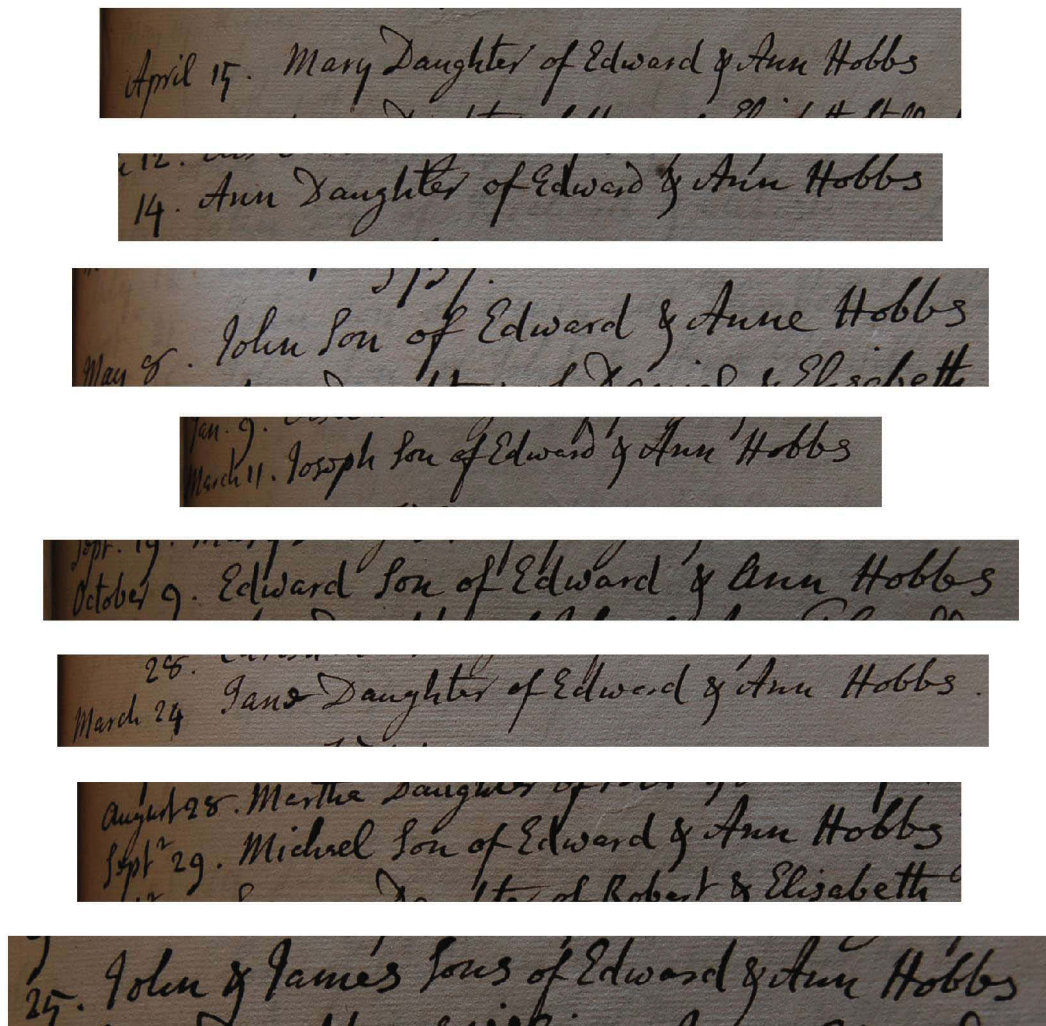 April 15. Mary Daughter of Edward & Ann Hobbs
12.
14. Ann Daughter of Edward & Ann Hobbs
May 8. John Son of Edward & Anne Hobbs
Elisabeth
Jan. 9.
March 11. Joseph Son of Edward & Ann Hobbs
Sept. 19.
October 9. Edward Son of Edward & Ann Hobbs
28.
March 24 Jane Daughter of Edward & Ann Hobbs.
August 28. Martha Daughter of
Sept.r 29. Michael Son of Edward & Ann Hobbs
Daughter of Robert & Elisabeth
25. John & James Sons of Edward & Ann Hobbs